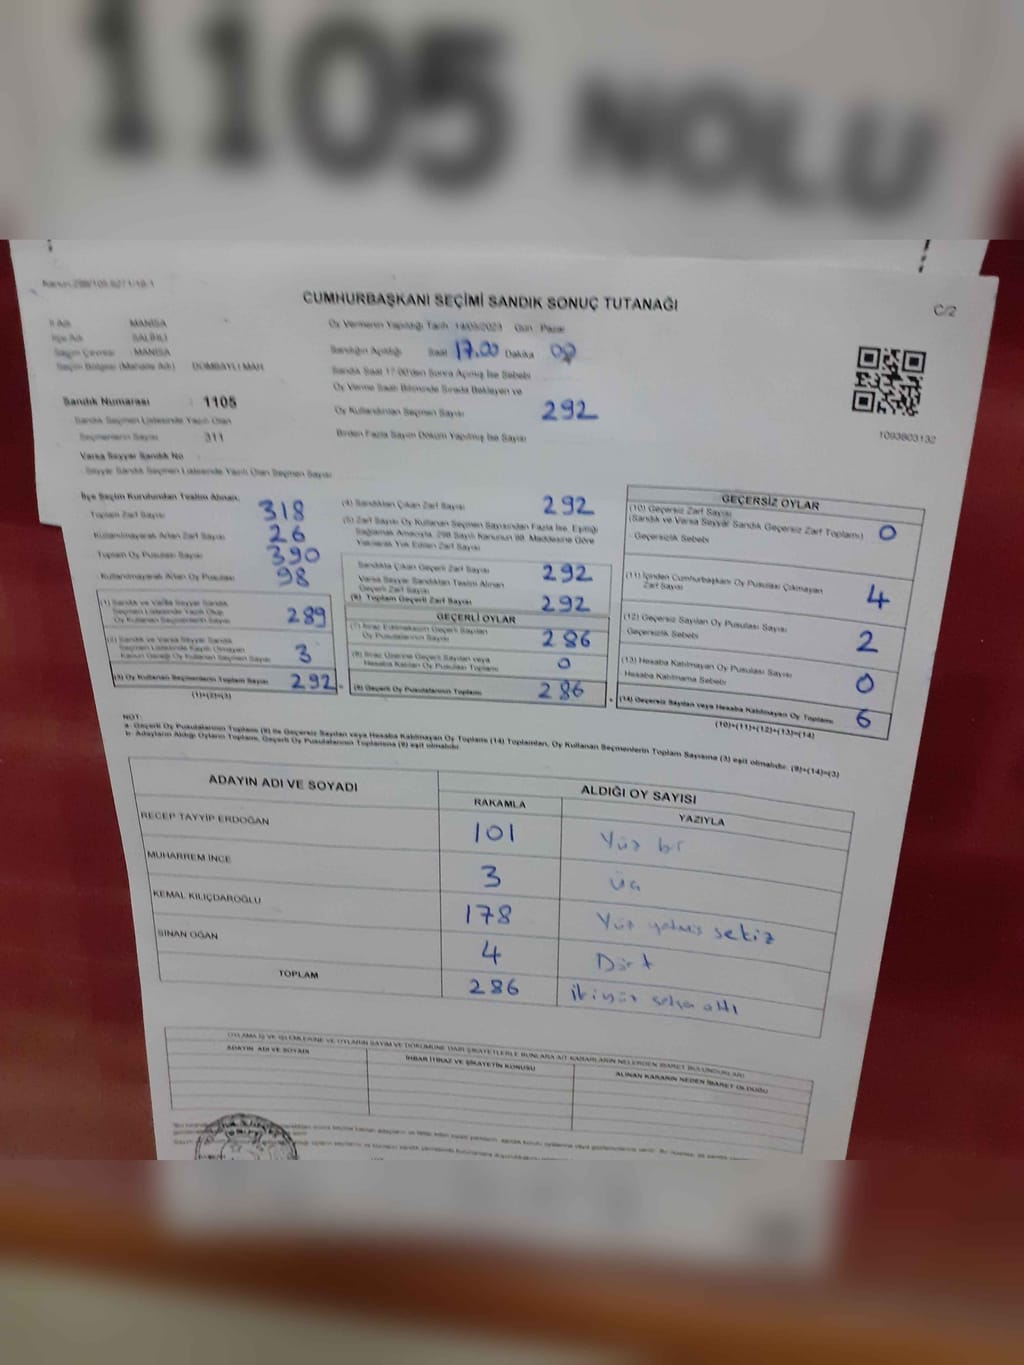 1105 NOLU
CUMHURBAŞKANI SEÇİMİ SANDIK SONUÇ TUTANAĞI
C/2
İl Adı MANİSA
İlçe Adı SALİHLİ
Seçim Çevresi MANİSA
Seçim Bölgesi (Mahalle Adı) DOMBAYLI MAH
Oy Vermenin Yapıldığı Tarih 14/05/2023 Gün Pazar
Sandığın Açıldığı Saat 17.00 Dakika 00
Sandık Saat 17:00'den Sonra Açılmış İse Sebebi
Oy Verme Saati Bitiminde Sırada Bekleyen ve
Oy Kullandırılan Seçmen Sayısı 292
Birden Fazla Sayım Döküm Yapılmış İse Sayısı
1093803132
Sandık Numarası 1105
Sandık Seçmen Listesinde Yazılı Olan
Seçmenlerin Sayısı 311
Varsa Seyyar Sandık No
Seyyar Sandık Seçmen Listesinde Yazılı Olan Seçmen Sayısı
İlçe Seçim Kurulundan Teslim Alınan;
Toplam Zarf Sayısı 318
Kullanılmayarak Artan Zarf Sayısı 26
Toplam Oy Pusulası Sayısı 390
Kullanılmayarak Artan Oy Pusulası 98
(1) Sandık ve Varsa Seyyar Sandık
Seçmen Listesinde Yazılı Olup
Oy Kullanan Seçmenlerin Sayısı 289
(2) Sandık ve Varsa Seyyar Sandık
Seçmen Listesinde Kayıtlı Olmayan
Kanun Gereği Oy Kullanan Seçmen Sayısı 3
(3) Oy Kullanan Seçmenlerin Toplam Sayısı 292
(1)+(2)=(3)
(4) Sandıktan Çıkan Zarf Sayısı 292
(5) Zarf Sayısı Oy Kullanan Seçmen Sayısından Fazla İse, Eşitliği
Sağlamak Amacıyla, 298 Sayılı Kanunun 98. Maddesine Göre
Yakılarak Yok Edilen Zarf Sayısı
Sandıkta Çıkan Geçerli Zarf Sayısı 292
Varsa Seyyar Sandıktan Teslim Alınan
Geçerli Zarf Sayısı
(6) Toplam Geçerli Zarf Sayısı 292
GEÇERLİ OYLAR
(7) İtiraz Edilmeksizin Geçerli Sayılan
Oy Pusulalarının Sayısı 286
(8) İtiraz Üzerine Geçerli Sayılan veya
Hesaba Katılan Oy Pusulası Toplamı 0
(9) Geçerli Oy Pusulalarının Toplamı 286
GEÇERSİZ OYLAR
(10) Geçersiz Zarf Sayısı
(Sandık ve Varsa Seyyar Sandık Geçersiz Zarf Toplamı) 0
Geçersizlik Sebebi
(11) İçinden Cumhurbaşkanı Oy Pusulası Çıkmayan
Zarf Sayısı 4
(12) Geçersiz Sayılan Oy Pusulası Sayısı 2
Geçersizlik Sebebi
(13) Hesaba Katılmayan Oy Pusulası Sayısı 0
Hesaba Katılmama Sebebi
(14) Geçersiz Sayılan veya Hesaba Katılmayan Oy Toplamı 6
(10)+(11)+(12)+(13)=(14)
NOT:
a- Geçerli Oy Pusulalarının Toplamı (9) ile Geçersiz Sayılan veya Hesaba Katılmayan Oy Toplamı (14) Toplamları, Oy Kullanan Seçmenlerin Toplam Sayısına (3) eşit olmalıdır. (9)+(14)=(3)
b- Adayların Aldığı Oyların Toplamı, Geçerli Oy Pusulalarının Toplamına (9) eşit olmalıdır.
ADAYIN ADI VE SOYADI
ALDIĞI OY SAYISI
RAKAMLA YAZIYLA
RECEP TAYYİP ERDOĞAN 101 Yüz bir
MUHARREM İNCE 3 Üç
KEMAL KILIÇDAROĞLU 178 Yüz yetmiş sekiz
SİNAN OĞAN 4 Dört
TOPLAM 286 ikiyüz seksen altı
OYLAMA İŞ VE İŞLEMLERİNE VE OYLARIN SAYIM VE DÖKÜMÜNE DAİR ŞİKAYETLERLE BUNLARA AİT KARARLARIN NELERDEN İBARET BULUNDUKLARI
ADAYIN ADI VE SOYADI
İHBAR İTİRAZ VE ŞİKAYETİN KONUSU
ALINAN KARARIN NEDEN İBARET OLDUĞU